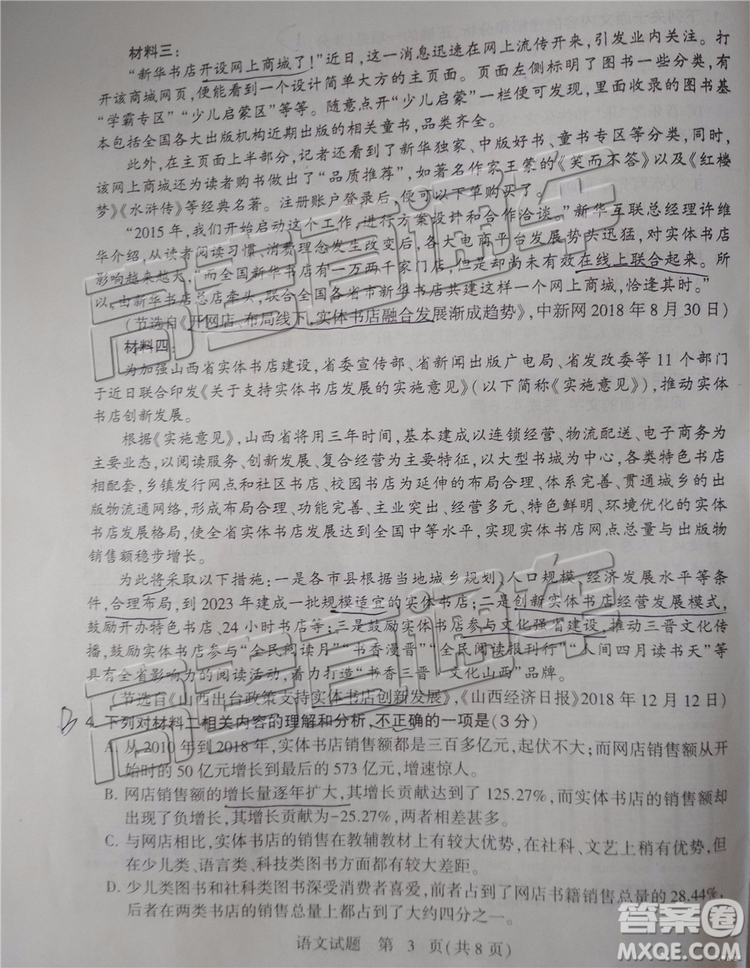 材料三:
“新华书店开设网上商城了!”近日,这一消息迅速在网上流传开来,引发业内关注。打
开该商城网页,便能看到一个设计简单大方的主页面。页面左侧标明了图书一些分类,有
“学霸专区”“少儿启蒙区”等等。随意点开“少儿启蒙”一栏便可发现,里面收录的图书基
本包括全国各大出版机构近期出版的相关童书,品类齐全。
此外,在主页面上半部分,记者还看到了新华独家、中版好书、童书专区等分类,同时,
该网上商城还为读者购书做出了“品质推荐”,如著名作家王蒙的《笑而不答》以及《红楼
梦》《水浒传》等经典名著。注册账户登录后,便可以下单购买了。
“2015年,我们开始启动这个工作,进行方案设计和合作洽谈。”新华互联总经理许维
华介绍,从读者阅读习惯、消费理念发生改变后,各大电商平台发展势头迅猛,对实体书店
影响越来越大,“而全国新华书店有一万两千家门店,但是却尚未有效在线上联合起来。所
以,由新华书店总店牵头,联合全国各省市新华书店共建这样一个网上商城,恰逢其时。”
(节选自《开网店、布局线下,实体书店融合发展渐成趋势》,中新网2018年8月30日)
材料四:
为加强山西省实体书店建设,省委宣传部、省新闻出版广电局、省发改委等11个部门
于近日联合印发《关于支持实体书店发展的实施意见》(以下简称《实施意见》),推动实体
书店创新发展。
根据《实施意见》,山西省将用三年时间,基本建成以连锁经营、物流配送、电子商务为
主要业态,以阅读服务、创新发展、复合经营为主要特征,以大型书城为中心,各类特色书店
相配套,乡镇发行网点和社区书店、校园书店为延伸的布局合理、体系完善、覆盖城乡的出版
物流通网络,形成布局合理、功能完善、主业突出、经营多元、特色鲜明、环境优化的实体
书店发展格局,使全省实体书店发展达到全国中等水平,实现实体书店网点总量与出版物
销售额稳步增长。
为此将采取以下措施:一是各市县根据当地城乡规划、人口规模、经济发展水平等条
件,合理布局,到2023年建成一批规模适宜的实体书店;二是创新实体书店经营发展模式,
鼓励开办特色书店、24小时书店等;三是鼓励实体书店参与文化强省建设,推动三晋文化传
播,鼓励实体书店参与“全民阅读月”“书香漫晋”“全民阅读报刊行”“人间四月读书天”等
具有全省影响力的阅读活动,着力打造“书香三晋·文化山西”品牌。
(节选自《山西出台政策支持实体书店创新发展》,《山西经济日报》2018年12月12日)
4. 下列对材料二相关内容的理解和分析,不正确的一项是(3分)
A. 从2010年到2018年,实体书店销售额都是三百多亿元,起伏不大;而网店销售额从开
始时的50亿元增长到最后的573亿元,增速惊人。
B. 网店销售额的增长量逐年扩大,其增长贡献达到了125.27%,而实体书店的销售额却
出现了负增长,其增长贡献为-25.27%,两者相差甚多。
C. 与网店相比,实体书店的销售在教辅教材上有较大优势,在社科、文艺上稍有优势,但
在少儿类、语言类、科技类图书方面都有较大差距。
D. 少儿类图书和社科类图书深受消费者喜爱,前者占到了网店书籍销售总量的28.44%,
后者在两类书店的销售总量上都占到了大约四分之一。
语文试题 第 3 页(共8页)
高考直通车
高考直通车
答案圈
MXQE.COM